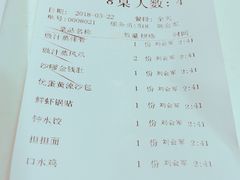 8桌人数: 4
日期: 2018-03-22 餐段: 全天
单号: 0008021
菜品名称 数量 规格 时间
豉汁蒸排骨 1 份 刘会军 2:41
豉汁蒸凤爪 1 份 刘会军 2:41
沙嗲金钱肚 1 份 刘会军 2:41
优蛋黄流沙包 1 份 刘会军 2:41
鲜虾锅贴 1 份 刘会军 2:41
钟水饺 1 份 刘会军 2:41
担担面 1 份 刘会军 2:41
口水鸡 1 份 刘会军 2:41